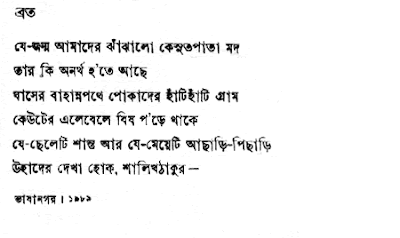 ব্রত
যে-জন্ম আমাদের ঝাঁঝালো কেসুতপাতা মদ
তার কি অনর্থ হ'তে আছে
ঘাসের বাহান্নপথে পোকাদের হাঁটিহাঁটি গ্রাম
কেউটের এলেবেলে বিষ প'ড়ে থাকে
যে-ছেলেটি শান্ত আর যে-মেয়েটি আছাড়ি-পিছাড়ি
উহাদের দেখা হোক, শালিখঠাকুর —
ভাষানগর । ১৯৮৯